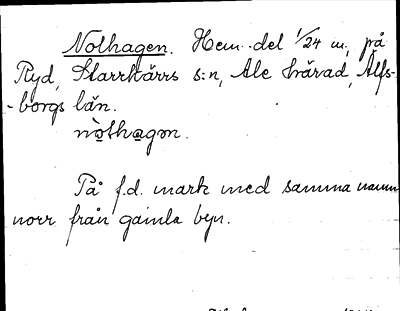 Nolhagen. Hem.del 1/24 m, på
Ryd, Starrkärrs s:n, Ale härad, Älfs-
-borgs län.
nòlhagən.
På f.d. mark med samma namn
norr från gamla byn.